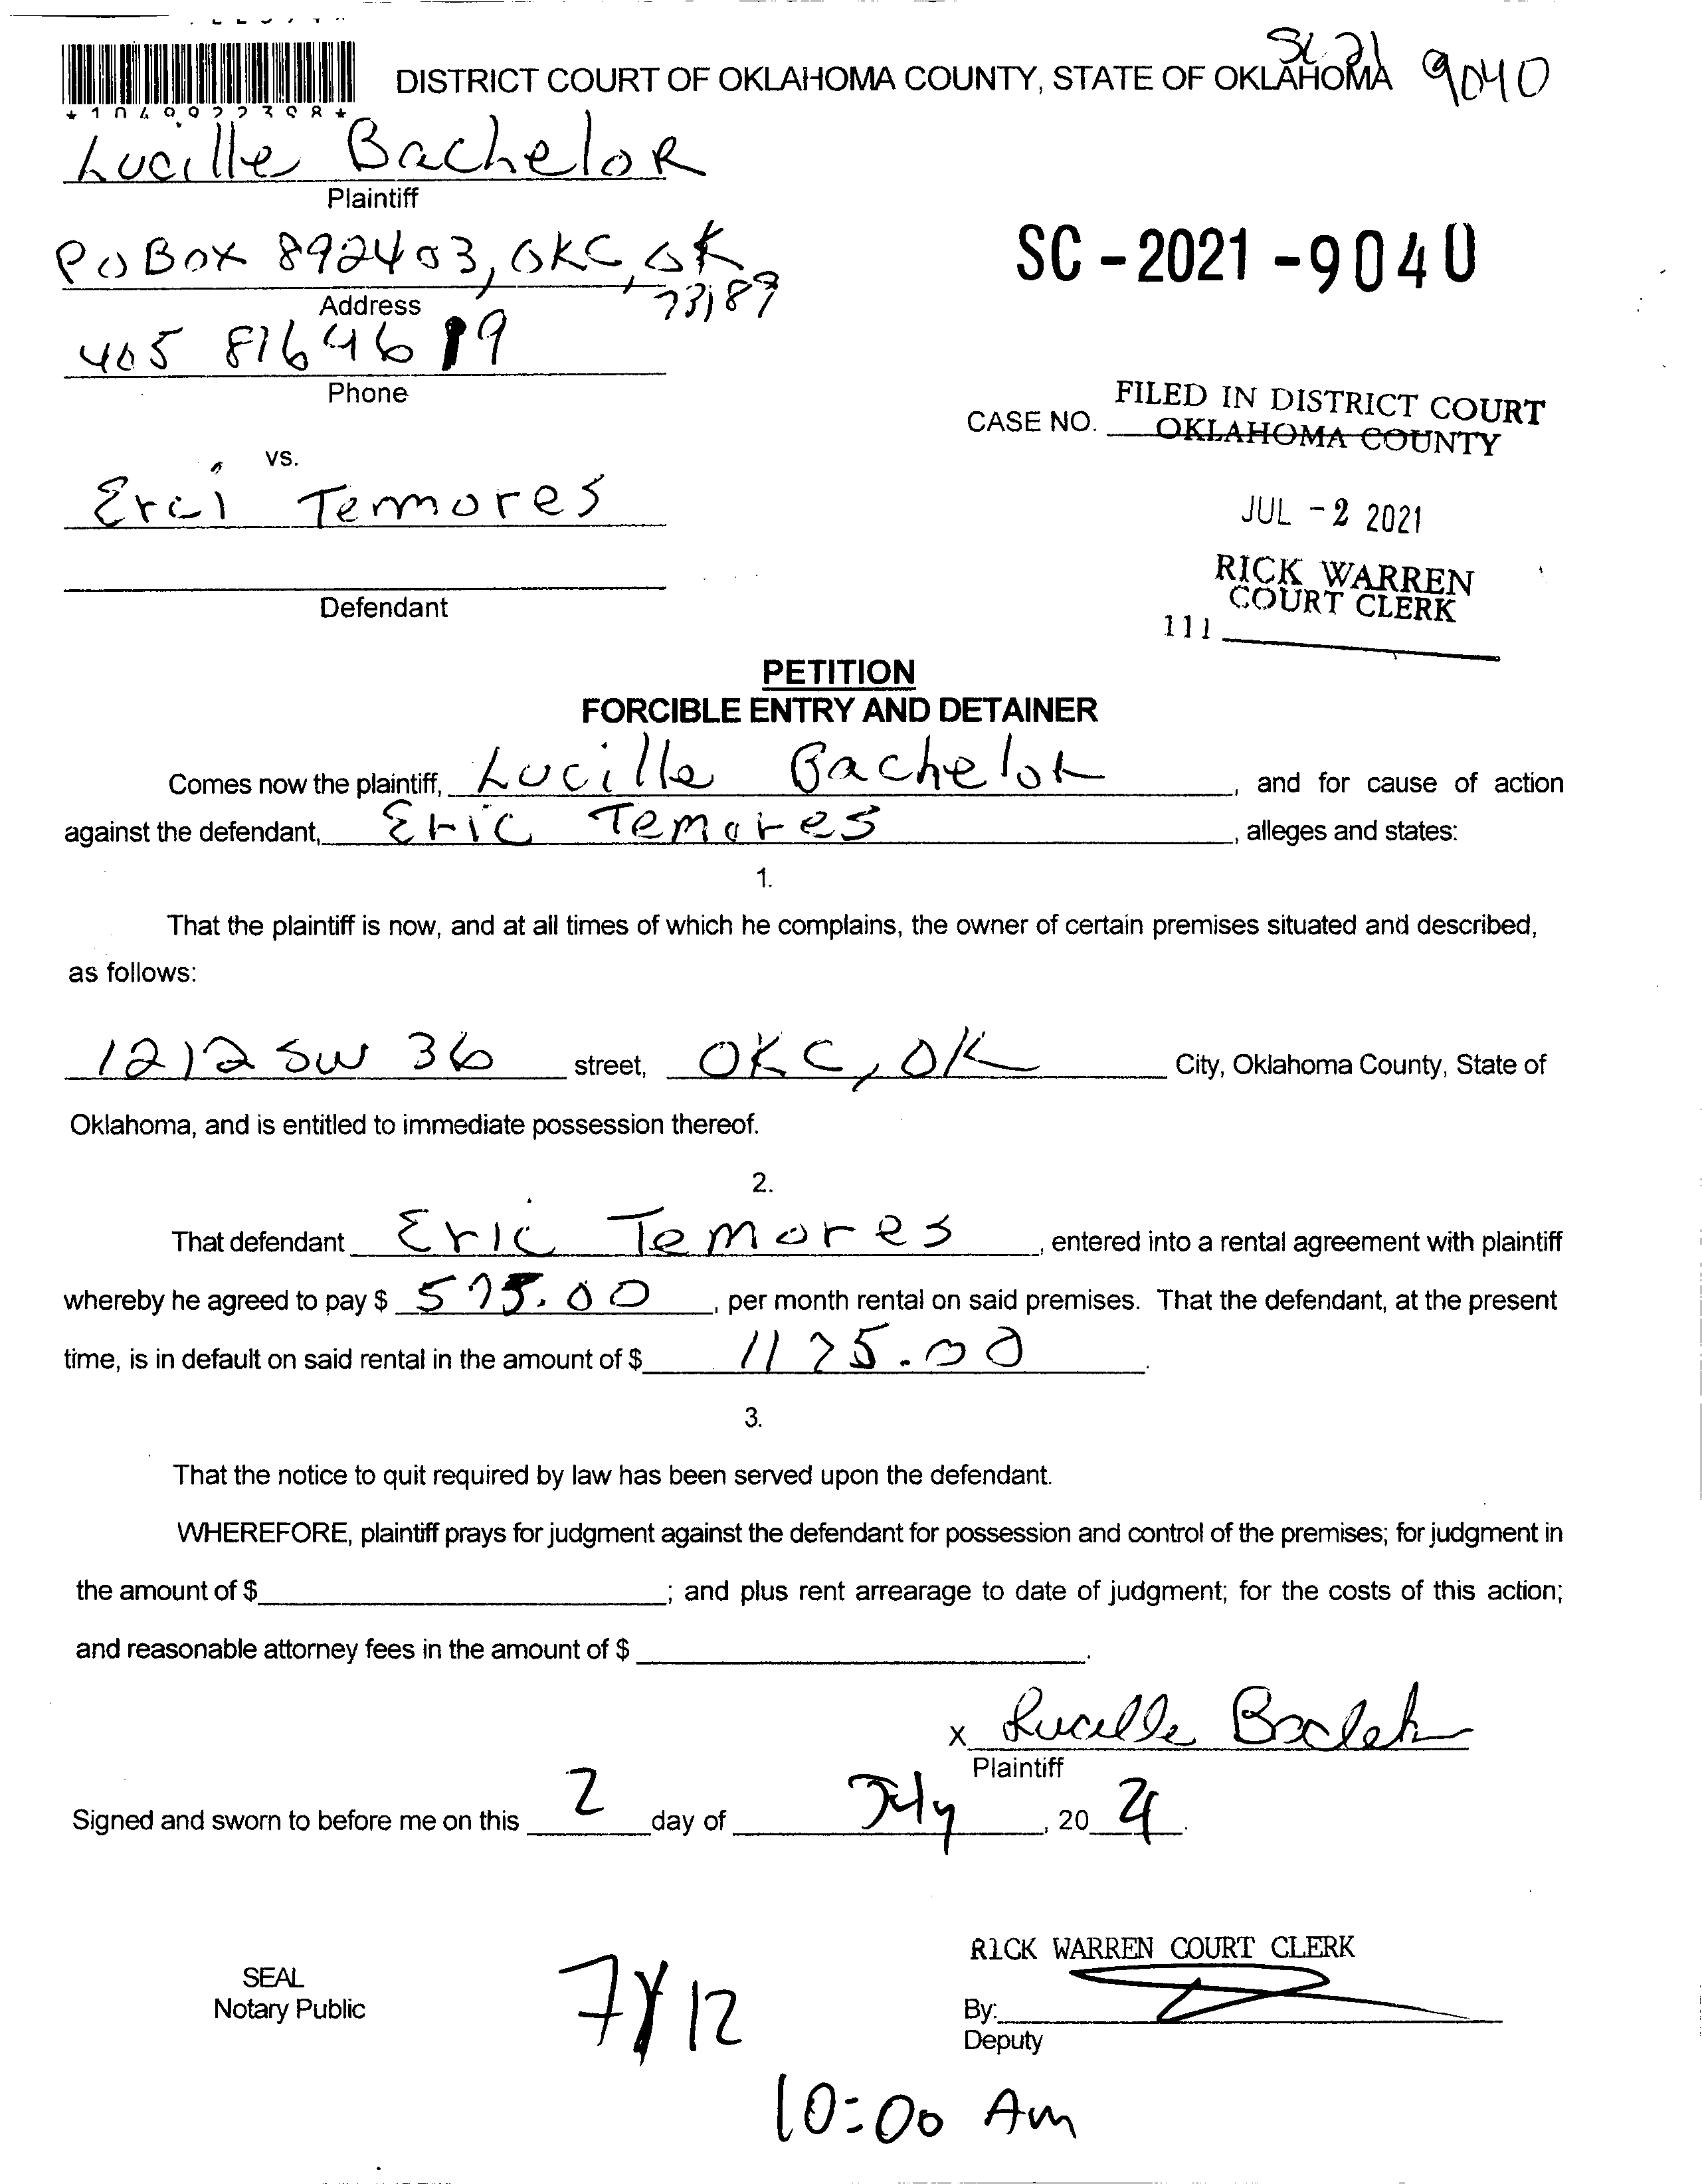 SC 21 9040
DISTRICT COURT OF OKLAHOMA COUNTY, STATE OF OKLAHOMA
Lucille Bachelor
Plaintiff
PO Box 892403, OKC, OK
73189
Address
405 8164619
Phone
SC-2021-9040
FILED IN DISTRICT COURT
CASE NO. OKLAHOMA COUNTY
vs.
Erci Temores
JUL -2 2021
RICK WARREN
COURT CLERK
Defendant
111
PETITION
FORCIBLE ENTRY AND DETAINER
Comes now the plaintiff, Lucille Bachelor, and for cause of action
against the defendant, Eric Temores, alleges and states:
1.
That the plaintiff is now, and at all times of which he complains, the owner of certain premises situated and described,
as follows:
1212 SW 36 street, OKC, OK City, Oklahoma County, State of
Oklahoma, and is entitled to immediate possession thereof.
2.
That defendant Eric Temores, entered into a rental agreement with plaintiff
whereby he agreed to pay $ 575.00, per month rental on said premises. That the defendant, at the present
time, is in default on said rental in the amount of $ 1175.00.
3.
That the notice to quit required by law has been served upon the defendant.
WHEREFORE, plaintiff prays for judgment against the defendant for possession and control of the premises; for judgment in
the amount of $ ; and plus rent arrearage to date of judgment; for the costs of this action;
and reasonable attorney fees in the amount of $ .
x Lucille
Plaintiff
Signed and sworn to before me on this 2 day of July, 20 21.
RICK WARREN COURT CLERK
SEAL
Notary Public
7/12
By:
Deputy
10:00 Am